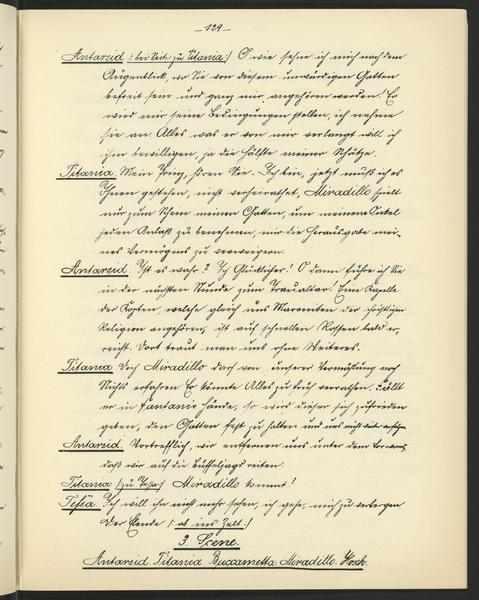 — 129 —
Antarsid (: bei Seite zu Titania :) O wie sehne ich mich nach dem
Augenblick, wo Sie von diesem unwürdigen Gatten
befreit sein und ganz mir angehören werden! Er
wird mir seine Bedingungen stellen, ich nehme
sie an Alles was er von mir verlangt will ich
ihm bewilligen, ja die Hälfte meiner Schätze.
Titania Mein Prinz, hören Sie. Ich bin, jetzt muß ich es
Ihnen gestehen, nicht verheirathet, Miradillo hielt
nur zum Schein meinen Gatten, um meinem Onkel
jeden Anlaß zu benehmen, mir die Herausgabe mei-
nes Vermögens zu verweigern.
Antarsid. Ist es wahr? Ich Glücklicher! O dann führe ich Sie
in der nächsten Stunde zum Traualtar! Eine Kapelle
der Kopten, welche gleich uns Maroniten der christlichen
Religion angehören, ist auf schnellen Rossen bald er-
reicht. Dort traut man uns ohne Weiteres.
Titania Doch Miradillo darf von unserer Vermählung noch
Nichts erfahren Er könnte Alles zu früh verrathen. Fällt
er in Fantanis Hände, so wird dieser sich zufrieden
geben, den Gatten fest zu halten und uns nicht
Antarsid. Vortrefflich, wir entfernen uns unter dem Vorwand,
daß wir auf die Büffeljagd reiten.
Titania (: zu Tefta :) Miradillo kommt!
Tefta Ich will ihn nicht mehr sehen, ich gehe, mich zu verbergen
Der Elende (: ab ins Zelt :)
3. Scene.
Antarsid Titania Buccametta Miradillo. Hosh.